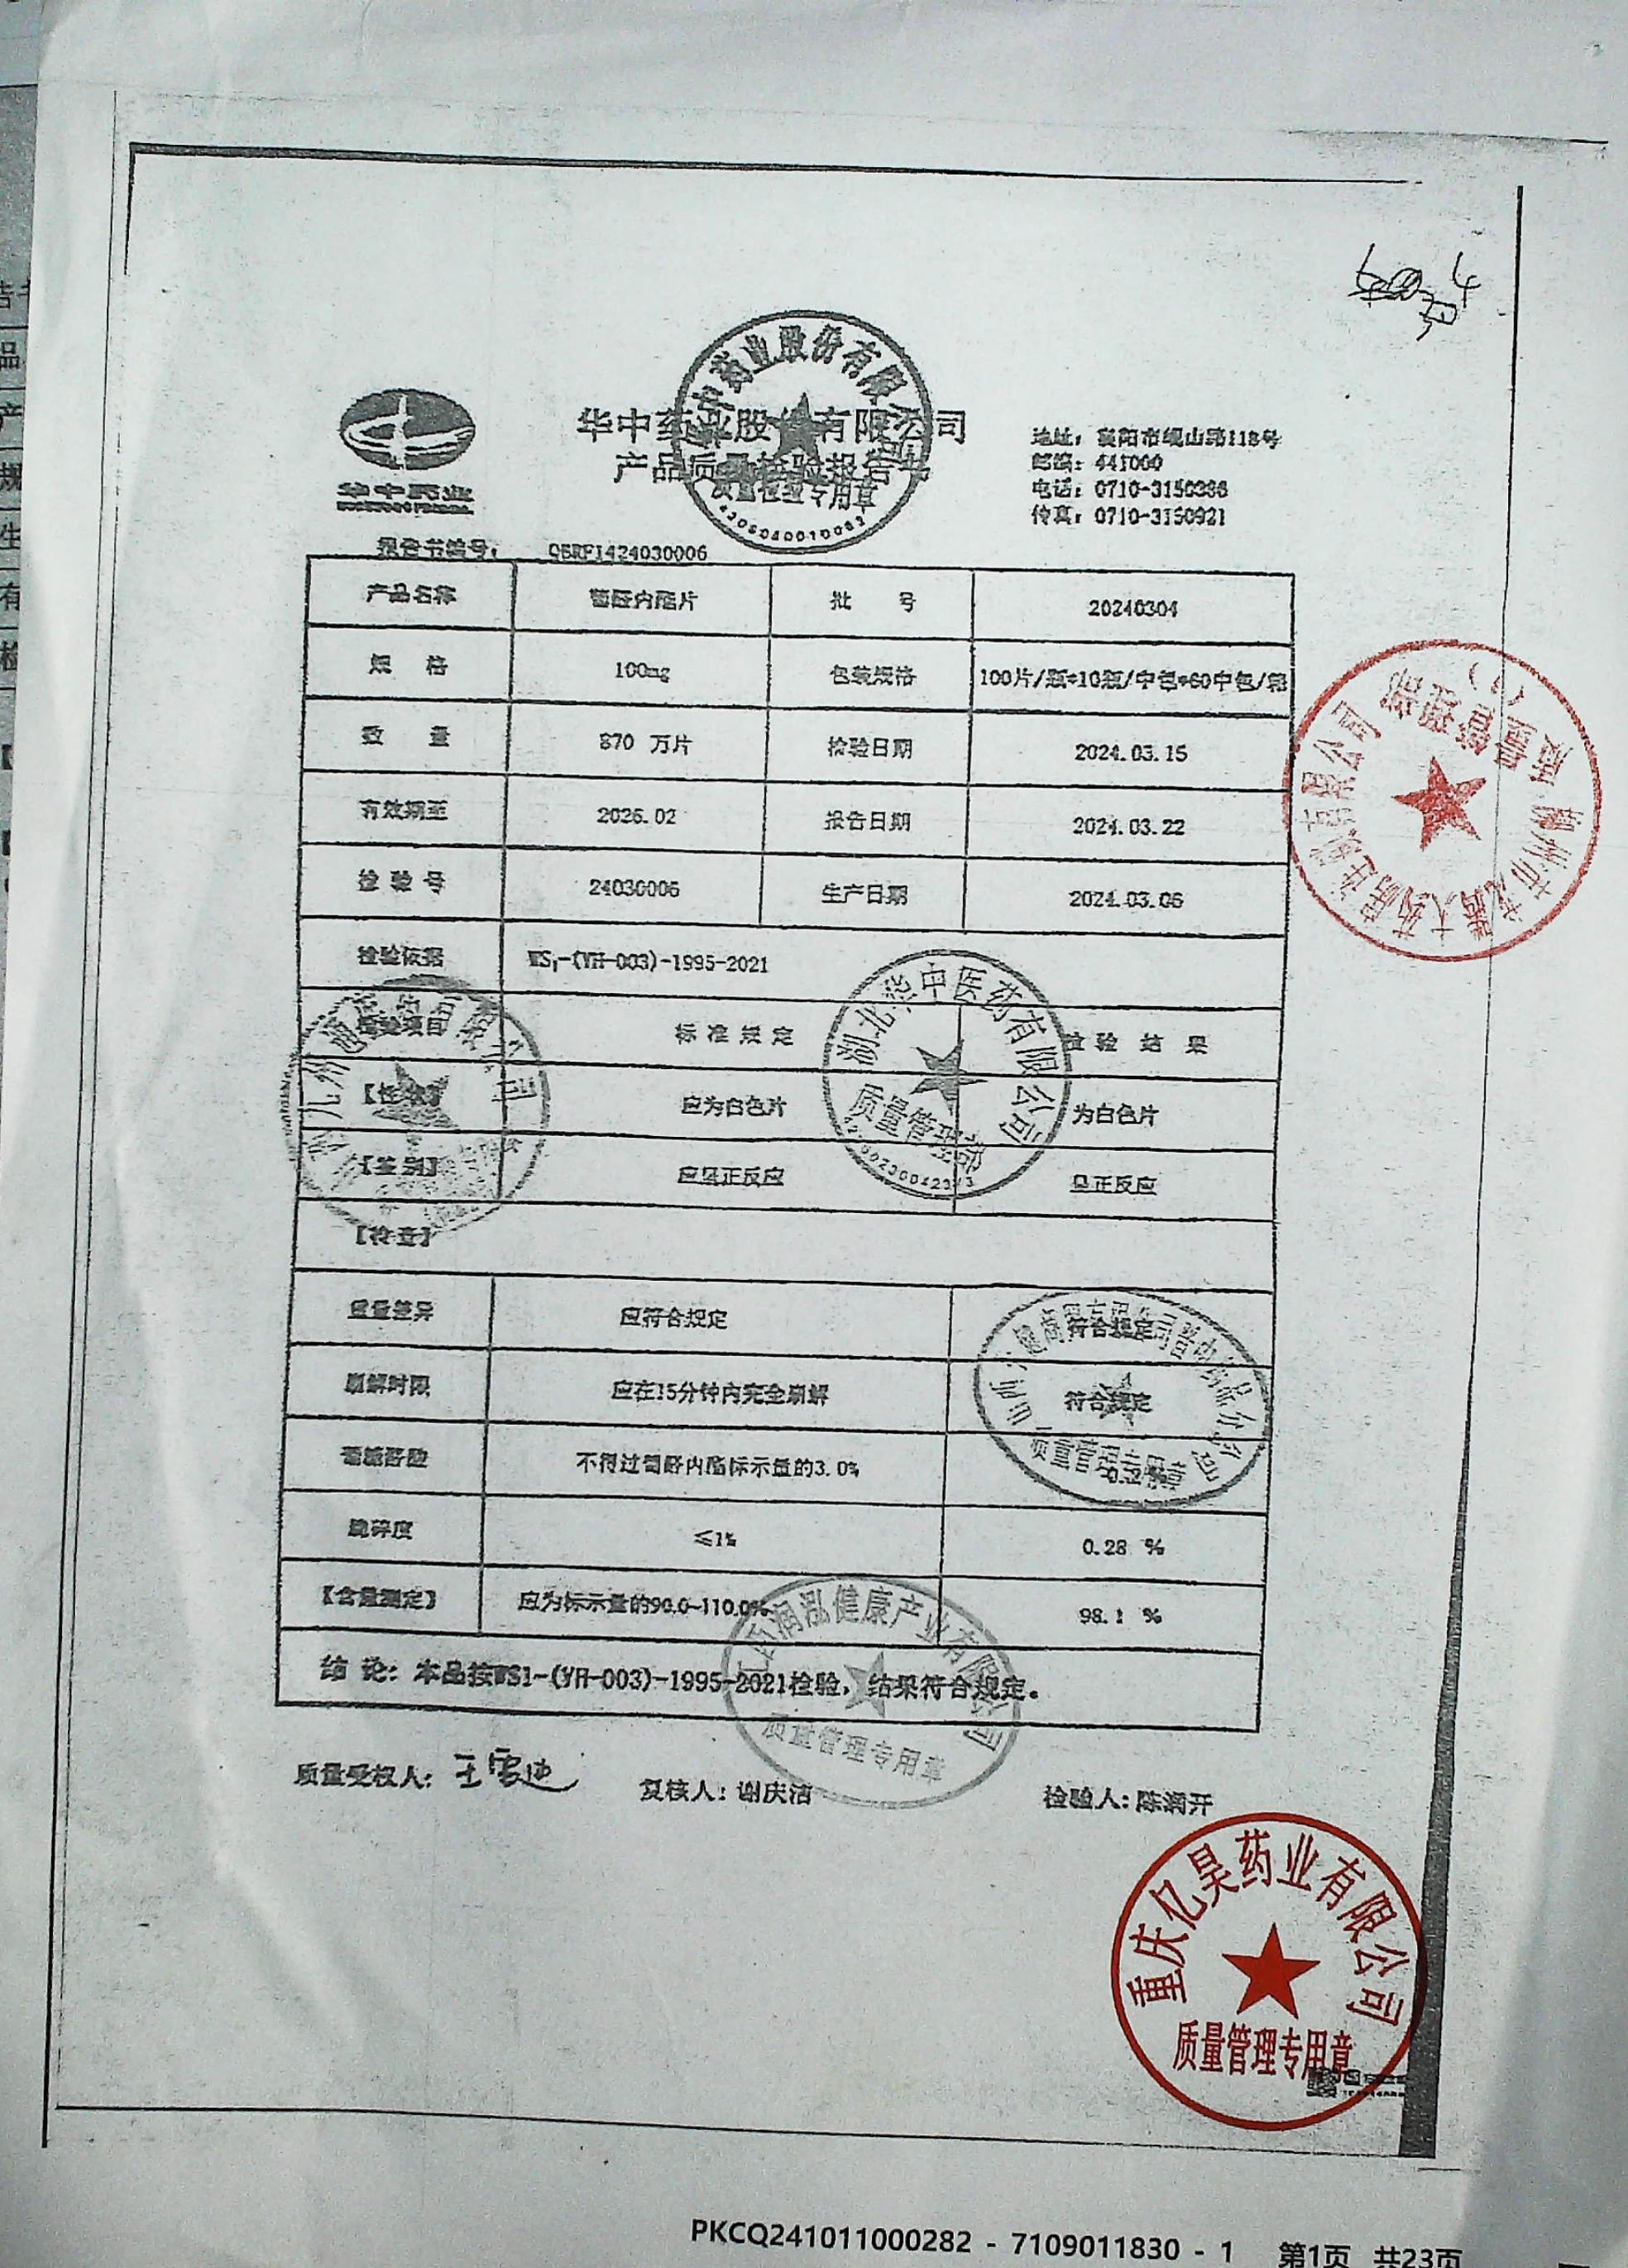 华中药业股份有限公司
产品质量检验报告书
华中药业
地址：襄阳市岘山路118号
邮编：441000
电话：0710-3150286
传真：0710-3150921
华中药业股份有限公司
质量检验专用章
报告书编号：
产品名称 葡醛内酯片 批 号 20240304
规 格 100mg 包装规格 100片/瓶*10瓶/中包*60中包/箱
数 量 870 万片 检验日期 2024.03.15
有效期至 2026.02 报告日期 2024.03.22
检 验 号 24030006 生产日期 2024.03.06
检验依据 WS₁-(YH-003)-1995-2021
检验项目 标 准 规 定 检 验 结 果
【性状】 应为白色片 为白色片
【鉴别】 应呈正反应 呈正反应
【检查】
质量差异 应符合规定 符合规定
崩解时限 应在15分钟内完全崩解 符合规定
葡糖醛酸 不得过葡醛内酯标示量的3.0%
脆碎度 ≤1% 0.28 %
【含量测定】 应为标示量的90.0~110.0% 98.1 %
结 论：本品按WS1-(YH-003)-1995-2021检验，结果符合规定。
湖北华中医药有限公司
质量管理部
质量管理专用章
润泓健康产业有限公司
质量管理专用章
质量受权人：
复核人：谢庆洁
检验人：陈润开
质量管理部
重庆亿昊药业有限公司
质量管理专用章
PKCQ241011000282 - 7109011830 - 1 第1页 共23页